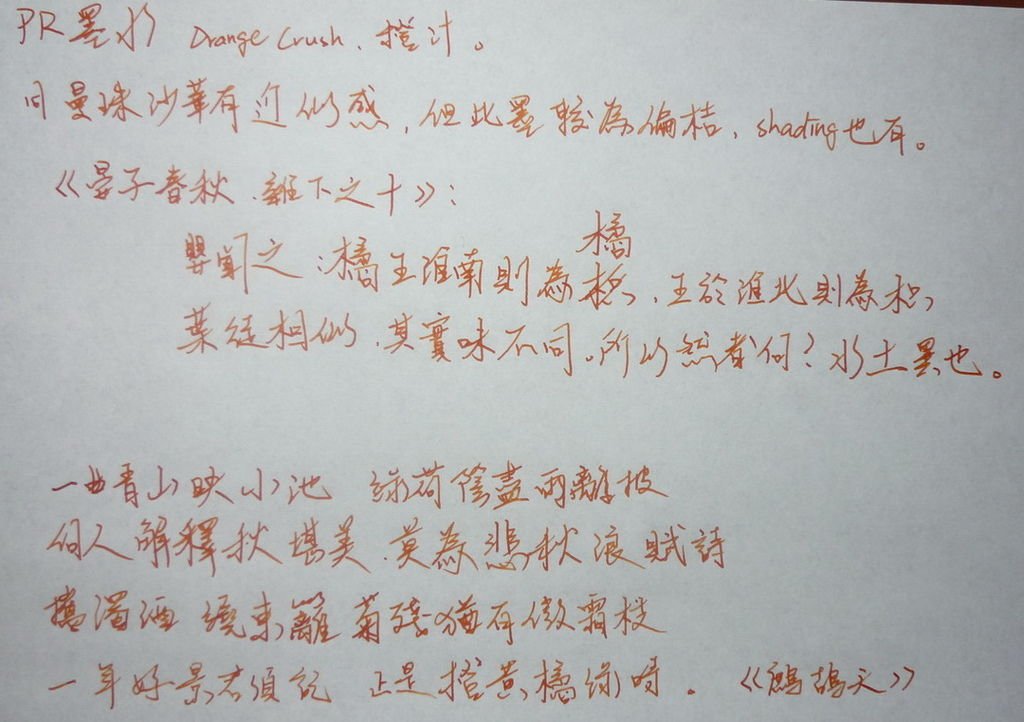 PR墨水 Orange Crush、橙汁。
同曼珠沙華有近似感,但此墨較為偏桔,shading也有。
《晏子春秋.雜下之十》:
橘
嬰聞之:橘生淮南則為枳,生於淮北則為枳,
葉徒相似,其實味不同。所以然者何?水土異也。
一曲青山映小池 綠荷陰盡雨離披
何人解釋秋堪美,莫為悲秋浪賦詩
攜濁酒 繞東籬 菊殘猶有傲霜枝
一年好景君須記 正是橙黃橘綠時。《鷓鴣天》